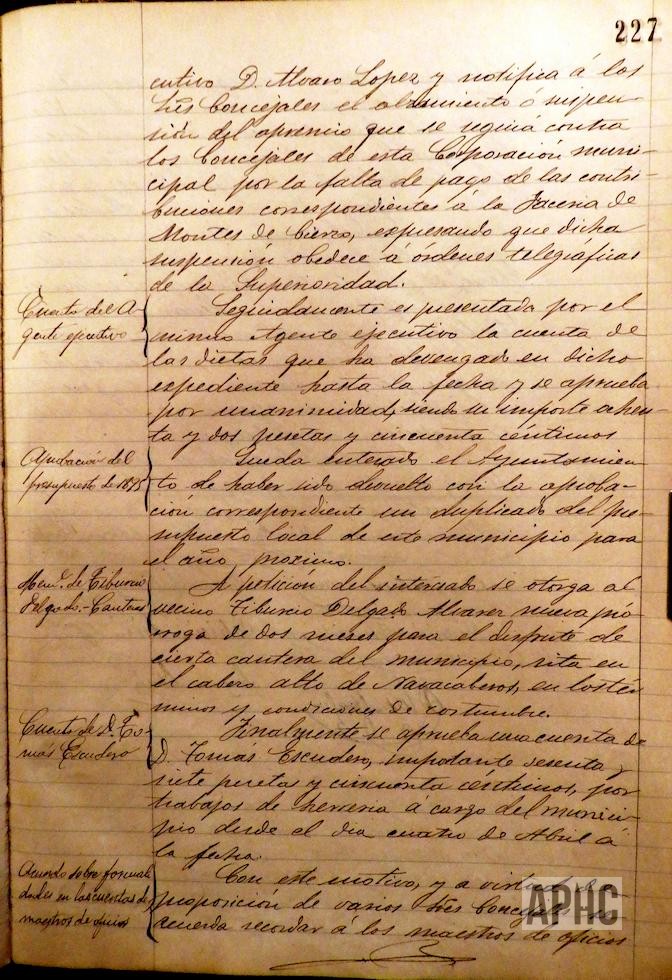 227
cutivo D. Alvaro Lopez y notifica á los
Sres Concejales el alzamiento ó suspen-
sión del apremio que se seguia contra
los Concejales de esta Corporación muni-
cipal por la falta de pago de las contri-
buciones correspondientes á la Jaceria de
Montes de Cierzo, expresando que dicha
suspensión obedece á órdenes telegráficas
de la Superioridad.
Cuenta del A-
gente ejecutivo
Seguidamente es presentada por el
mismo Agente ejecutivo la cuenta de
las dietas que ha devengado en dicho
expediente hasta la fecha y se aprueba
por unanimidad, siendo su importe ochen-
ta y dos pesetas y cincuenta céntimos
Aprobación del
presupuesto de 1895
Queda enterado el Ayuntamien-
to de haber sido devuelto con la aproba-
ción correspondiente un duplicado del pre-
supuesto local de este municipio para
el año proximo.
de Tiburcio
Delgado.-Canteras
A petición del interesado se otorga al
vecino Tiburcio Delgado Alvarez nueva pró-
rroga de dos meses para el disfrute de
cierta cantera del municipio, sita en
el cabezo alto de en los tér-
minos y condiciones de costumbre.
Cuenta de D. To-
más Escudero
Finalmente se aprueba una cuenta de
D. Tomás Escudero, importante sesenta y
siete pesetas y cincuenta céntimos, por
trabajos de herreria á cargo del munici-
pio desde el dia cuatro de Abril á
la fecha.
Acuerdo sobre formali-
dades en las cuentas de
maestros de oficios
Con este motivo, y a virtud de
proposición de varios Sres Concejales se
acuerda recordar á los maestros de oficios
APHC